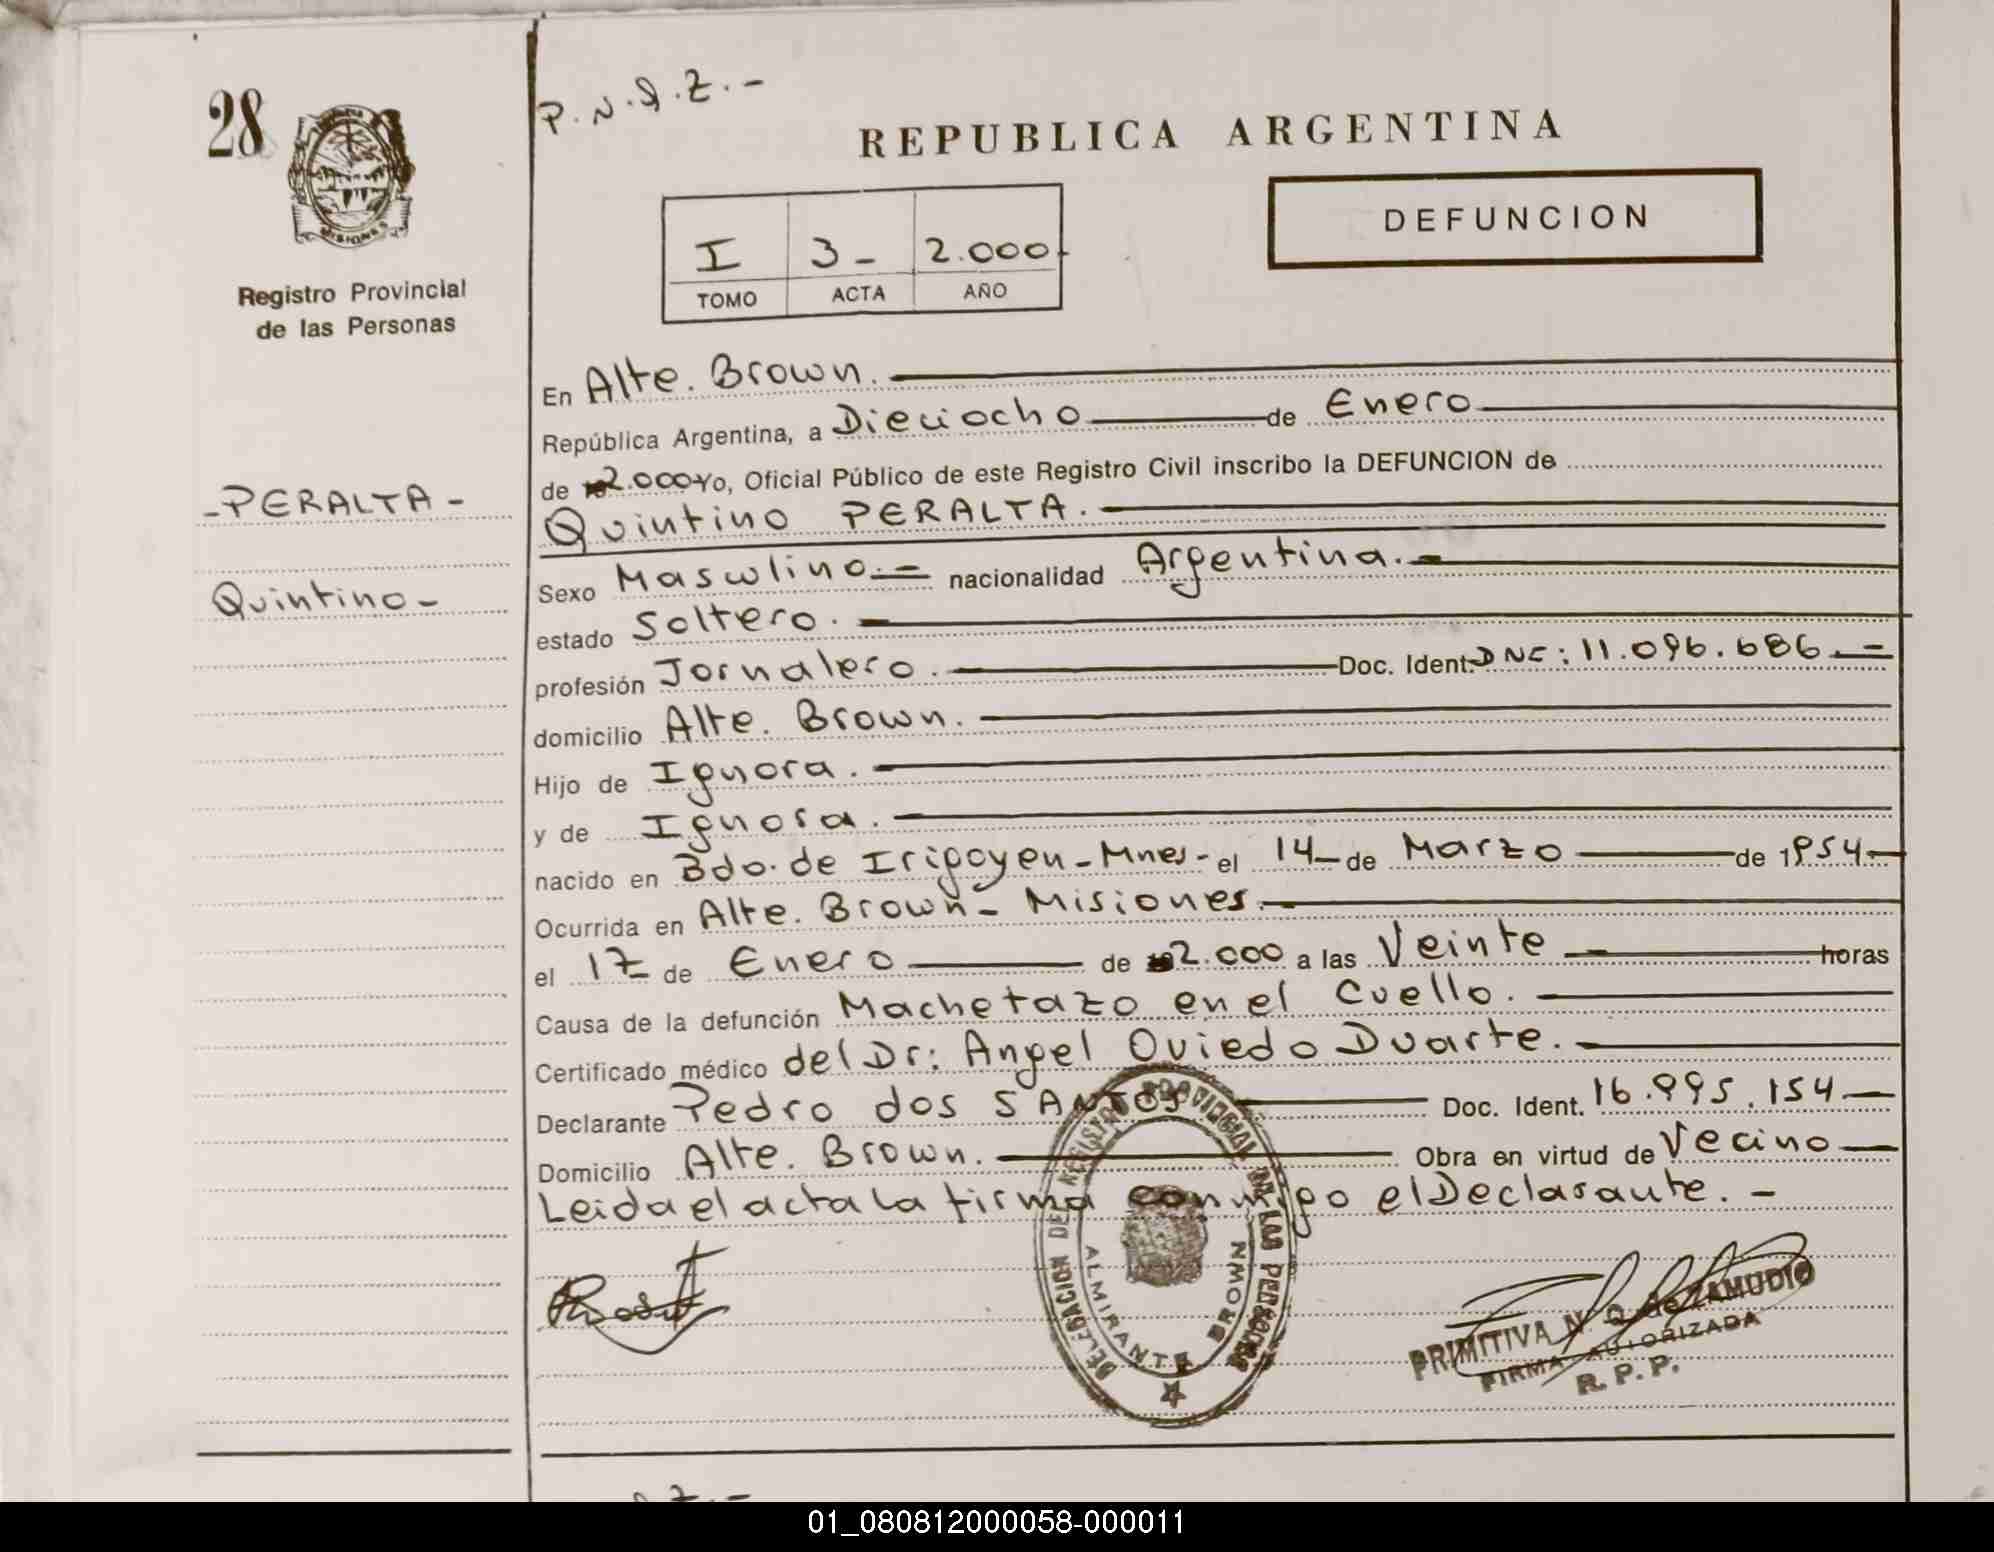 28
P.N.Q.Z.-
REPUBLICA ARGENTINA
MISIONES
Registro Provincial
de las Personas
I 3- 2.000-
TOMO ACTA AÑO
DEFUNCION
-PERALTA-
Quintino-
En Alte. Brown.
República Argentina, a Dieciocho de Enero
de 2.000 Yo, Oficial Público de este Registro Civil inscribo la DEFUNCION de
Quintino PERALTA.
Sexo Masculino.- nacionalidad Argentina.-
estado Soltero.
profesión Jornalero. Doc. Ident. DNI: 11.096.686
domicilio Alte. Brown.
Hijo de Ignora.
y de Ignora.
nacido en Bdo. de Irigoyen-Mnes- el 14- de Marzo de 1954-
Ocurrida en Alte. Brown- Misiones.
el 17 de Enero de 2.000 a las Veinte horas
Causa de la defunción Machetazo en el Cuello.
Certificado médico del Dr: Angel Oviedo Duarte.
Declarante Pedro dos SANTOS Doc. Ident. 16.995.154-
Domicilio Alte. Brown. Obra en virtud de Vecino
Leida el acta la firma conmigo el Declarante.-
DELEGACION DEL REGISTRO PROVINCIAL DE LAS PERSONAS
ALMIRANTE BROWN
PRIMITIVA N. Q. de ZAMUDIO
FIRMA AUTORIZADA
R. P. P.
01_080812000058-000011